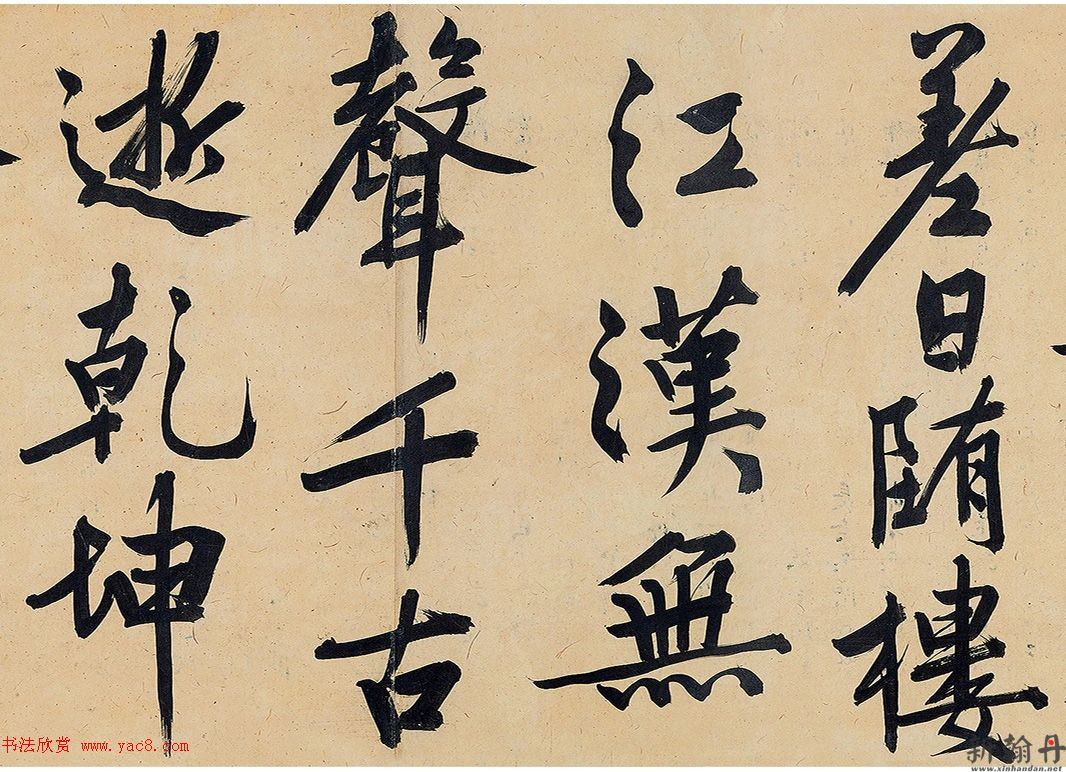 差日墮樓
江漢無
聲千古
逝乾坤
书法欣赏 www.yac8.com
新翰丹
www.xinhandan.net